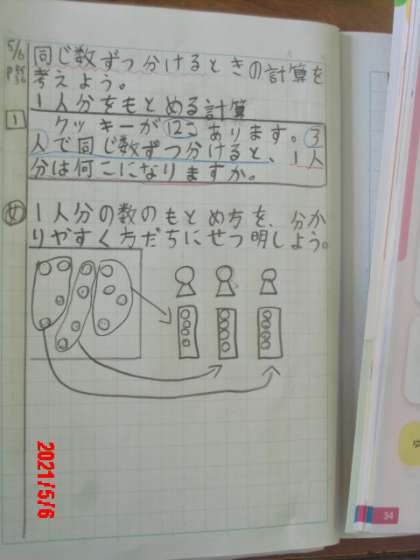 5/6
同じ数ずつ分けるときの計算を
考えよう。
1人分をもとめる計算
1
クッキーが12こあります。3
人で同じ数ずつ分けると、1人
分は何こになりますか。
1人分の数のもとめ方を、分か
りやすく友だちにせつ明しよう。
2021/5/6
34